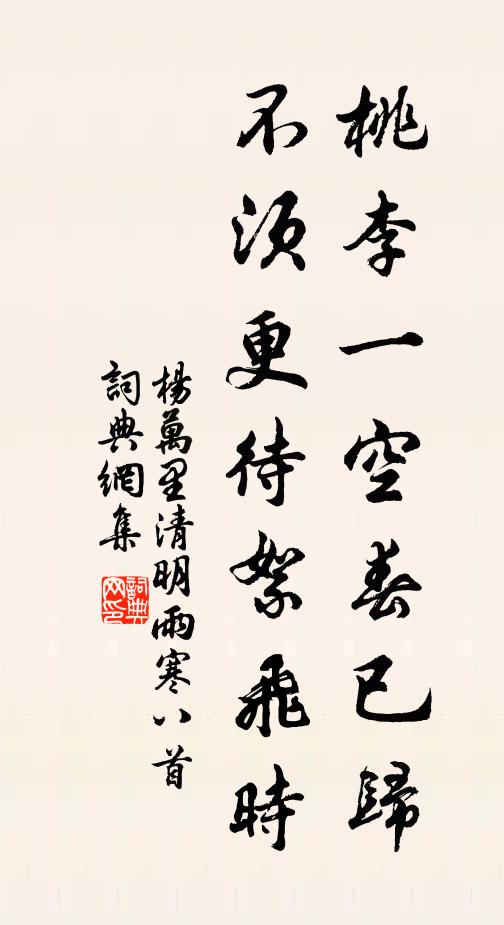 桃李一空春已歸
不須更待絮飛時
楊萬里清明雨寒八首
詞典網集
詞典網印